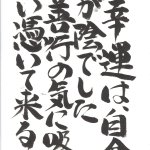 幸運は、自分
が陰でした
善行の気に吸
い憑いて来る